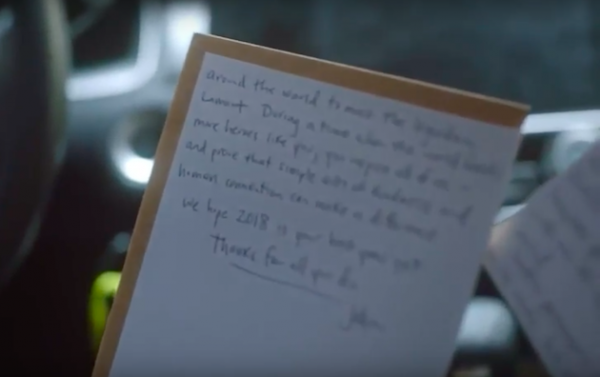 around the world to meet the legendary
Lamont. During a time when the world needs
more heroes like you, you inspire all of us
and prove that simple acts of kindness and
human connection can make a difference
we hope 2018 is your best year yet!
Thanks for all you do,
John